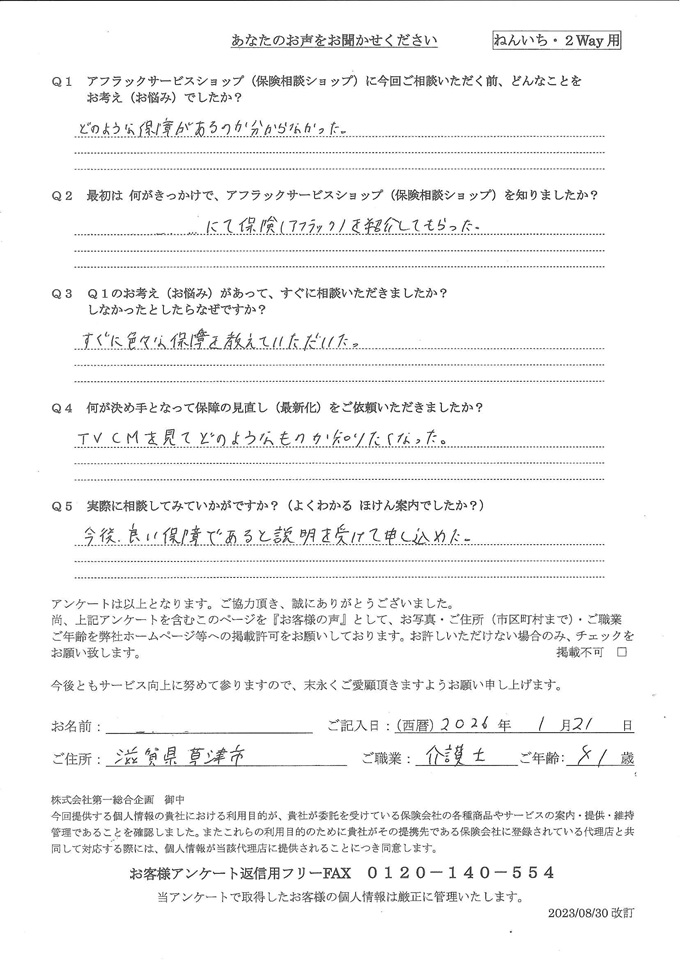 あなたのお声をお聞かせください
ねんいち・２Way用
Ｑ１ アフラックサービスショップ（保険相談ショップ）に今回ご相談いただく前、どんなことを
お考え（お悩み）でしたか？
どのような保障があるのか分からなかった。
Ｑ２ 最初は 何がきっかけで、アフラックサービスショップ（保険相談ショップ）を知りましたか？
にて保険（アフラック）を紹介してもらった。
Ｑ３ Ｑ１のお考え（お悩み）があって、すぐに相談いただきましたか？
しなかったとしたらなぜですか？
すぐに色々な保障を教えていただいた。
Ｑ４ 何が決め手となって保障の見直し（最新化）をご依頼いただきましたか？
TVCMを見てどのようなものか知りたくなった。
Ｑ５ 実際に相談してみていかがですか？（よくわかる ほけん案内でしたか？）
今後、良い保障であると説明を受けて申し込めた。
アンケートは以上となります。ご協力頂き、誠にありがとうございました。
尚、上記アンケートを含むこのページを『お客様の声』として、お写真・ご住所（市区町村まで）・ご職業
ご年齢を弊社ホームページ等への掲載許可をお願いしております。お許しいただけない場合のみ、チェックを
お願い致します。 掲載不可 □
今後ともサービス向上に努めて参りますので、末永くご愛顧頂きますようお願い申し上げます。
お名前： ご記入日：（西暦）2026年 1月21日
ご住所： 滋賀県草津市 ご職業： 介護士 ご年齢： 41歳
株式会社第一総合企画 御中
今回提供する個人情報の貴社における利用目的が、貴社が委託を受けている保険会社の各種商品やサービスの案内・提供・維持
管理であることを確認しました。またこれらの利用目的のために貴社がその提携先である保険会社に登録されている代理店と共
同して対応する際には、個人情報が当該代理店に提供されることにつき同意します。
お客様アンケート返信用フリーFAX ０１２０－１４０－５５４
当アンケートで取得したお客様の個人情報は厳正に管理いたします。
2023/08/30 改訂